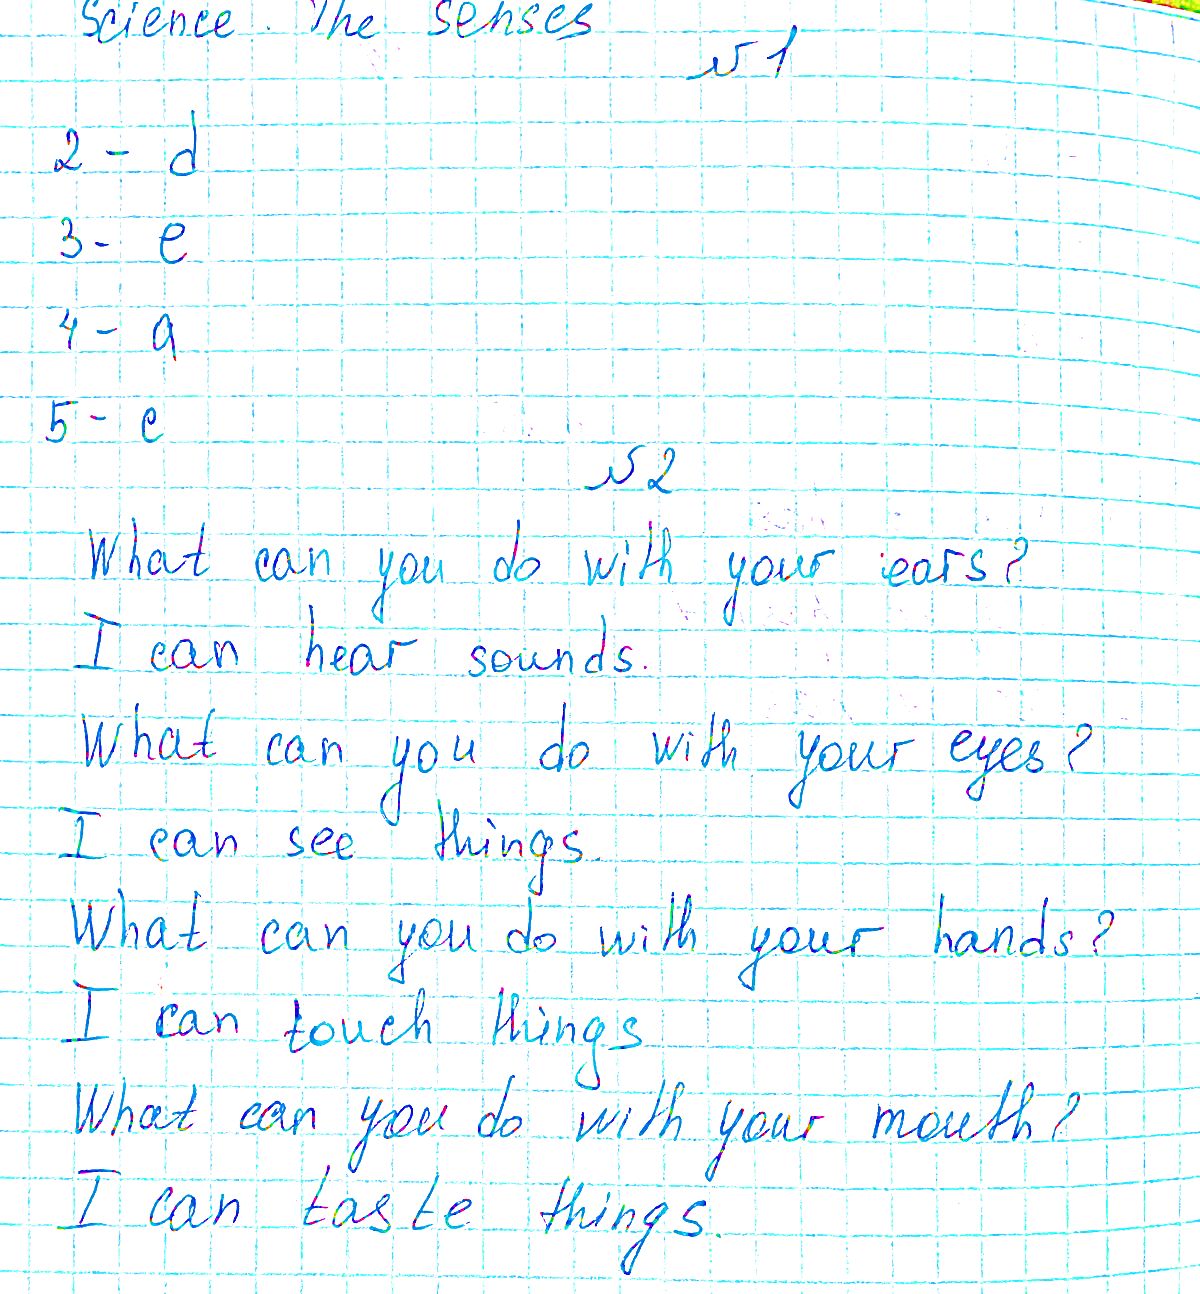 Science. The senses
№1
2 - d
3 - e
4 - a
5 - c
№2
What can you do with your ears?
I can hear sounds.
What can you do with your eyes?
I can see things.
What can you do with your hands?
I can touch things
What can you do with your mouth?
I can taste things.